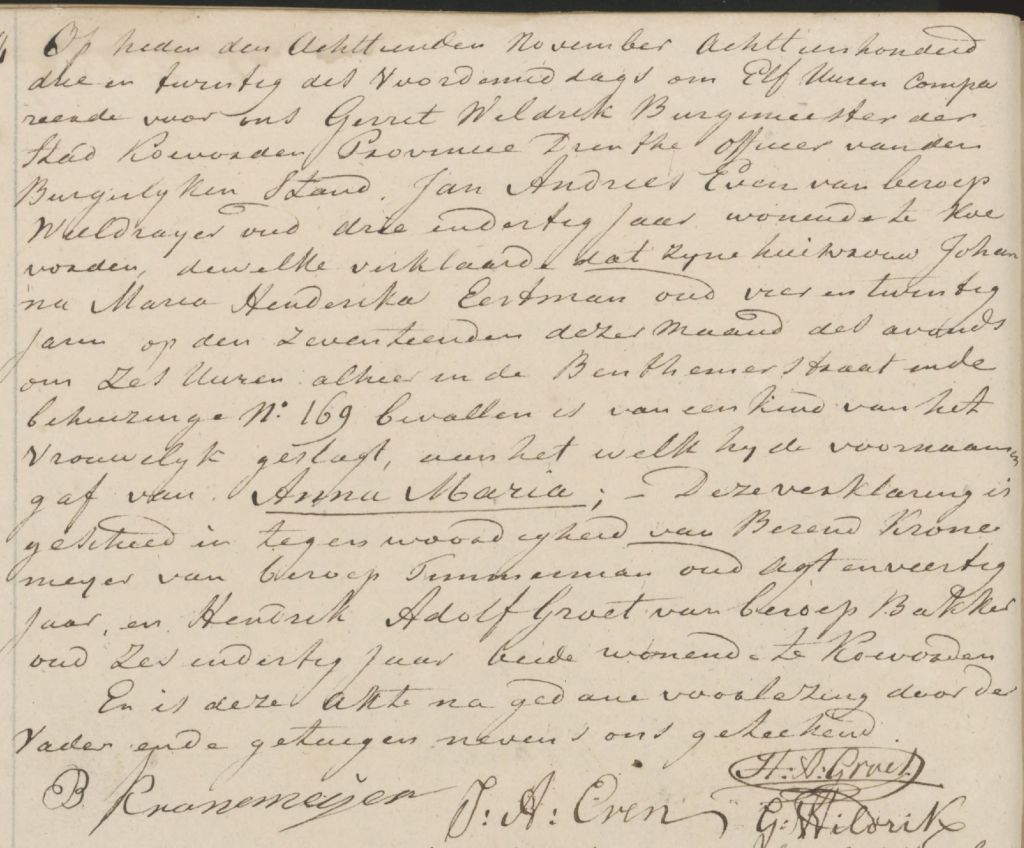 Op heden den Achttienden November Achttienhonderd
drie en twintig des Voordemiddags om Elf Uuren Compa
reerde voor ons Gerret Weldrik Burgemeester der
Stad Koevorden Provincie Drenthe officier van den
Burgerlyken Stand, Jan Andries Even van beroep
Wieldrayer oud drie endertig Jaar wonende te Koe
vorden, dewelke verklaarde dat zyne huisvrouw Johan
na Maria Henderika Eertman oud vier en twintig
Jaren op den Zeventienden dezer Maand des avonds
om Zes Uuren alhier in de Benthemerstraat in de
behuizinge N: 169 bevallen is van een kind van het
Vrouwelyk geslagt, aan het welk hy de voornaamen
gaf van Anna Maria; - Deze verklaring is
geschied in tegenswoordigheid van Berend Krone
meyer van beroep Timmerman oud Agt en veertig
Jaar, en Hendrik Adolf Groet van beroep Bakker
oud Zes endertig Jaar beide wonende te Koevorden
En is deze Akte na gedane voorlezing door de
Vader ende getuigen nevens ons geteekend.
H: A: Groet
B Kronemeijer J: A: Even G: Wildrik